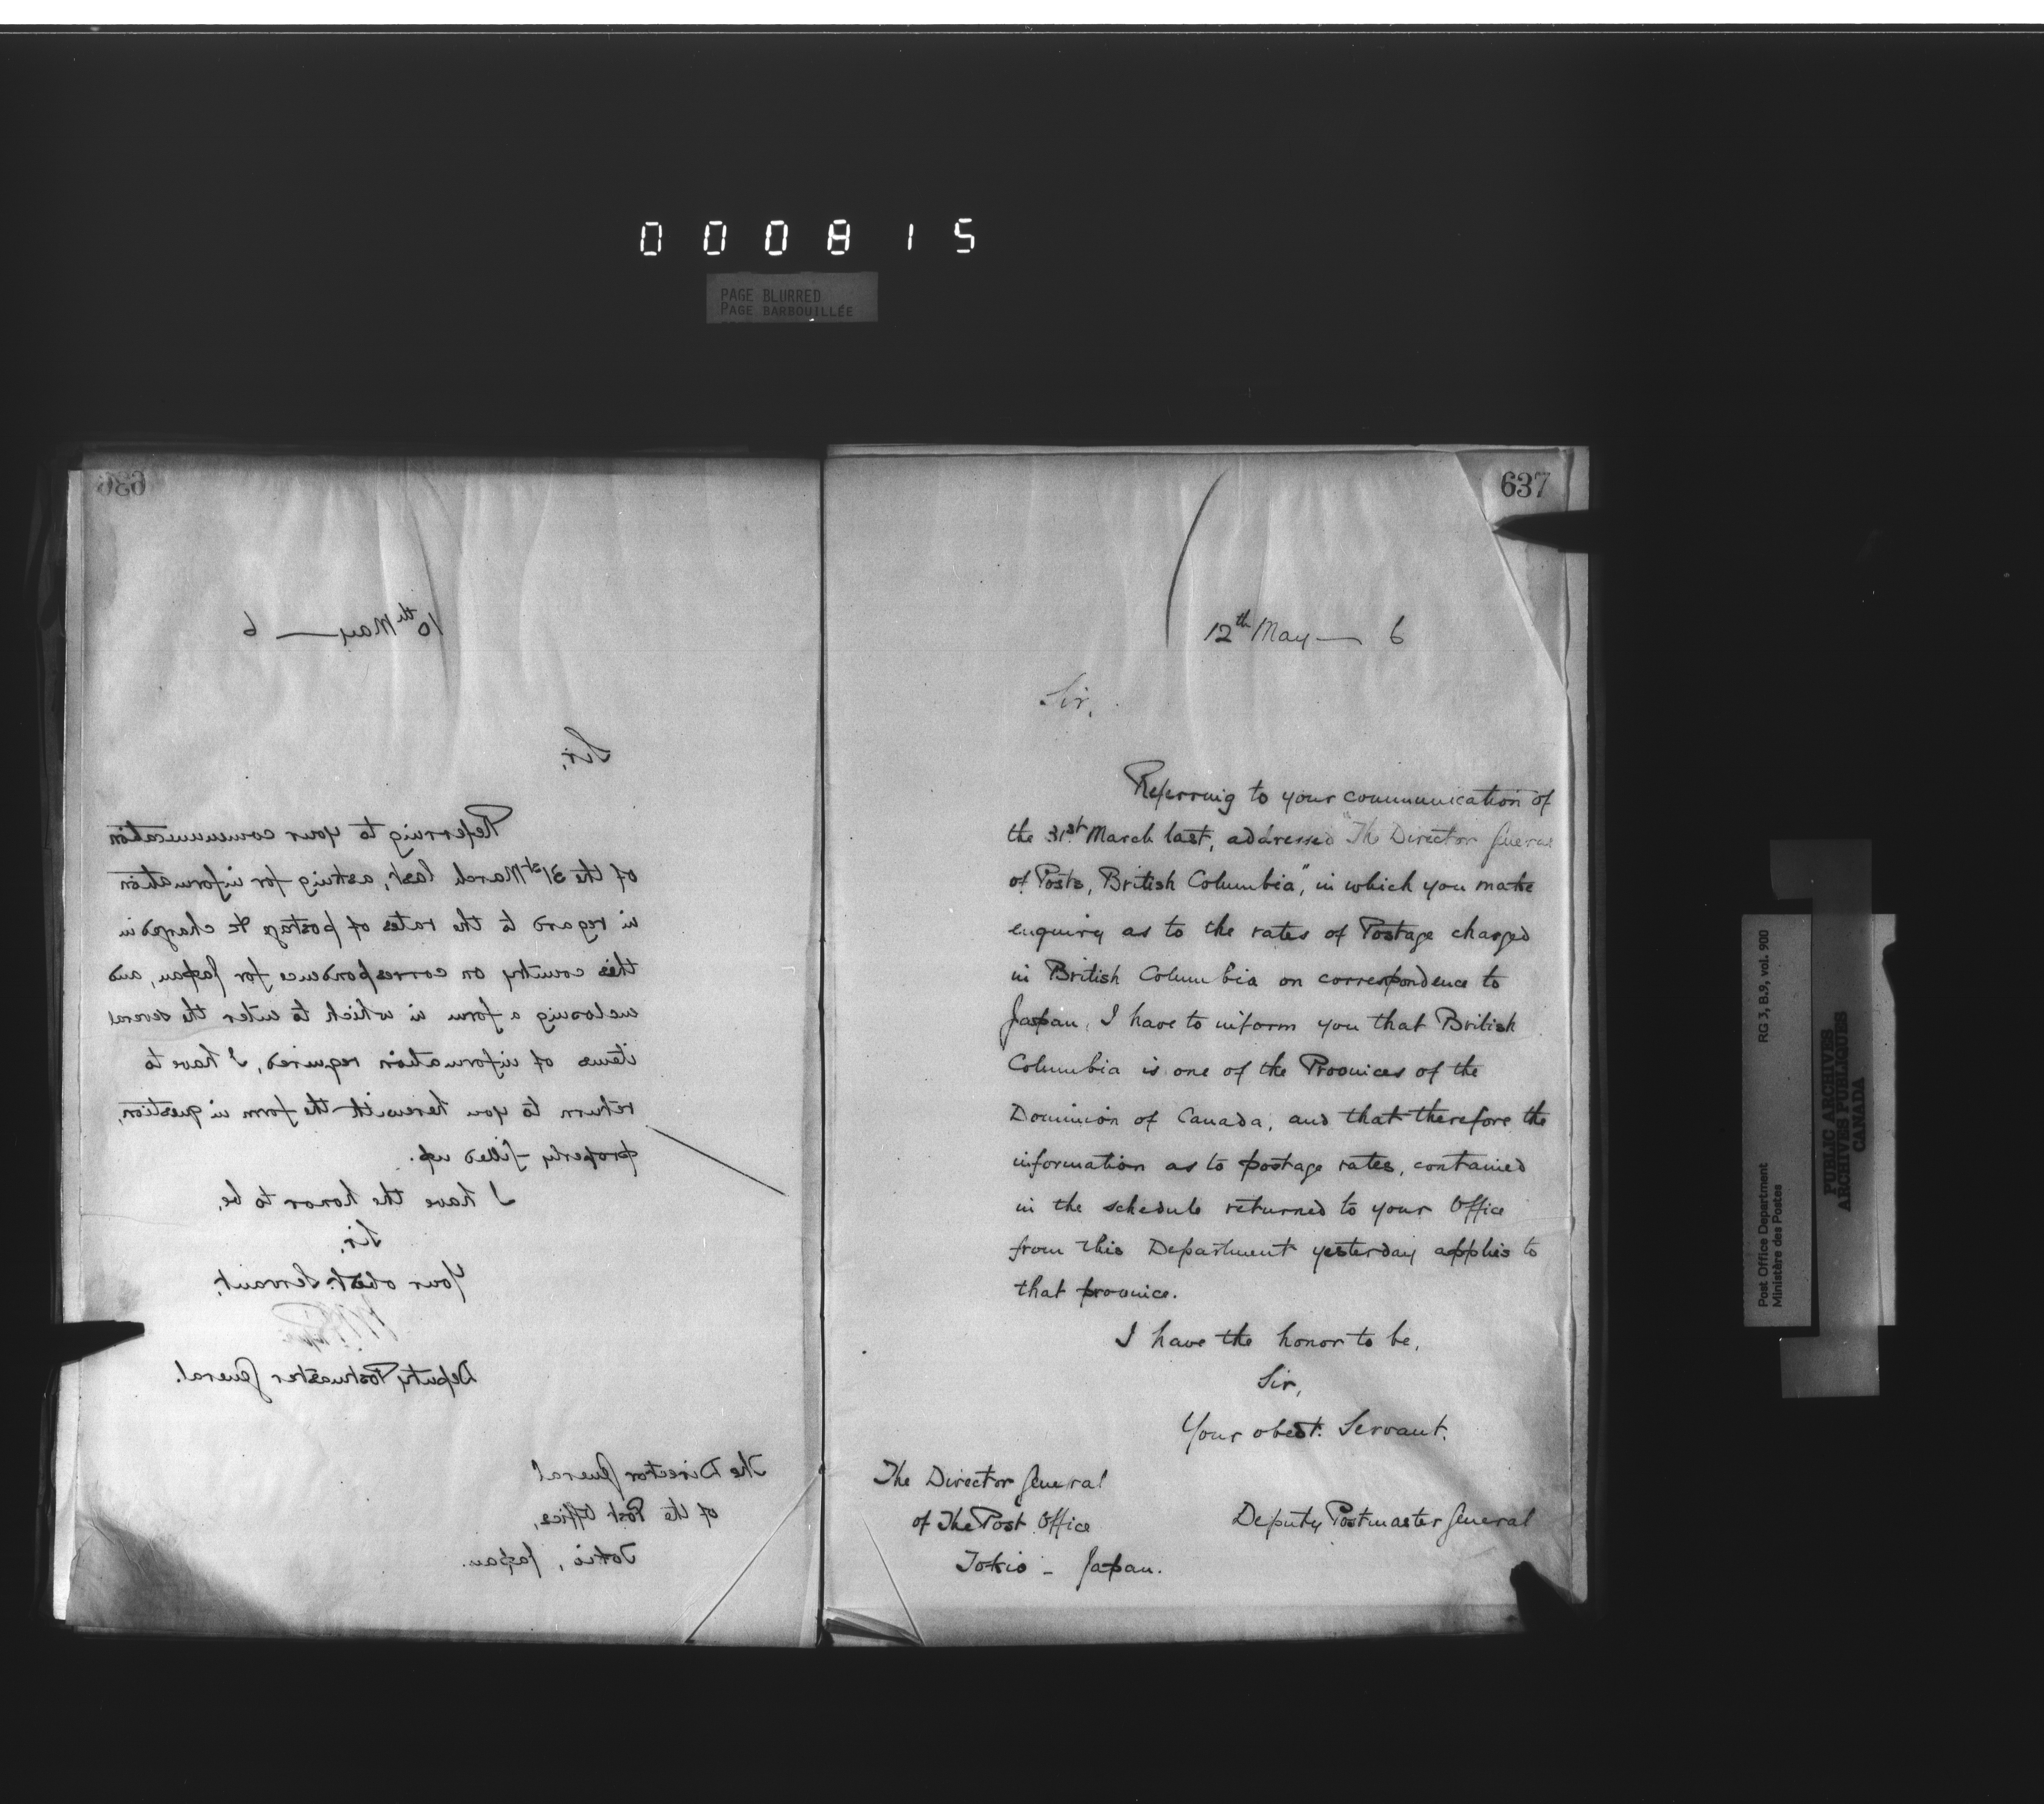 000815
PAGE BLURRED
PAGE BARBOUILLÉE
636
10th May — 6
Sir,
Referring to your communication
of the 31st March last, asking for information
in regard to the rates of postage &c charged in
this country on correspondence for Japan, and
enclosing a form in which to enter the several
items of information required, I have to
return to you herewith the form in question,
properly filled up.
I have the honor to be,
Sir,
Your obedt. Servant,
Deputy Postmaster General.
The Director General
of the Post Office,
Tokio, Japan.
637
12th May — 6
Sir,
Referring to your communication of
the 31st March last, addressed "The Director General
of Posts, British Columbia", in which you make
enquiry as to the rates of Postage charged
in British Columbia on correspondence to
Japan, I have to inform you that British
Columbia is one of the Provinces of the
Dominion of Canada, and that therefore the
information as to postage rates, contained
in the schedule returned to your Office
from this Department yesterday applies to
that province.
I have the honor to be,
Sir,
Your obedt. Servant.
Deputy Postmaster General
The Director General
of The Post Office
Tokio - Japan.
Post Office Department
Ministère des Postes
RG 3, B.9, vol. 900
PUBLIC ARCHIVES
ARCHIVES PUBLIQUES
CANADA